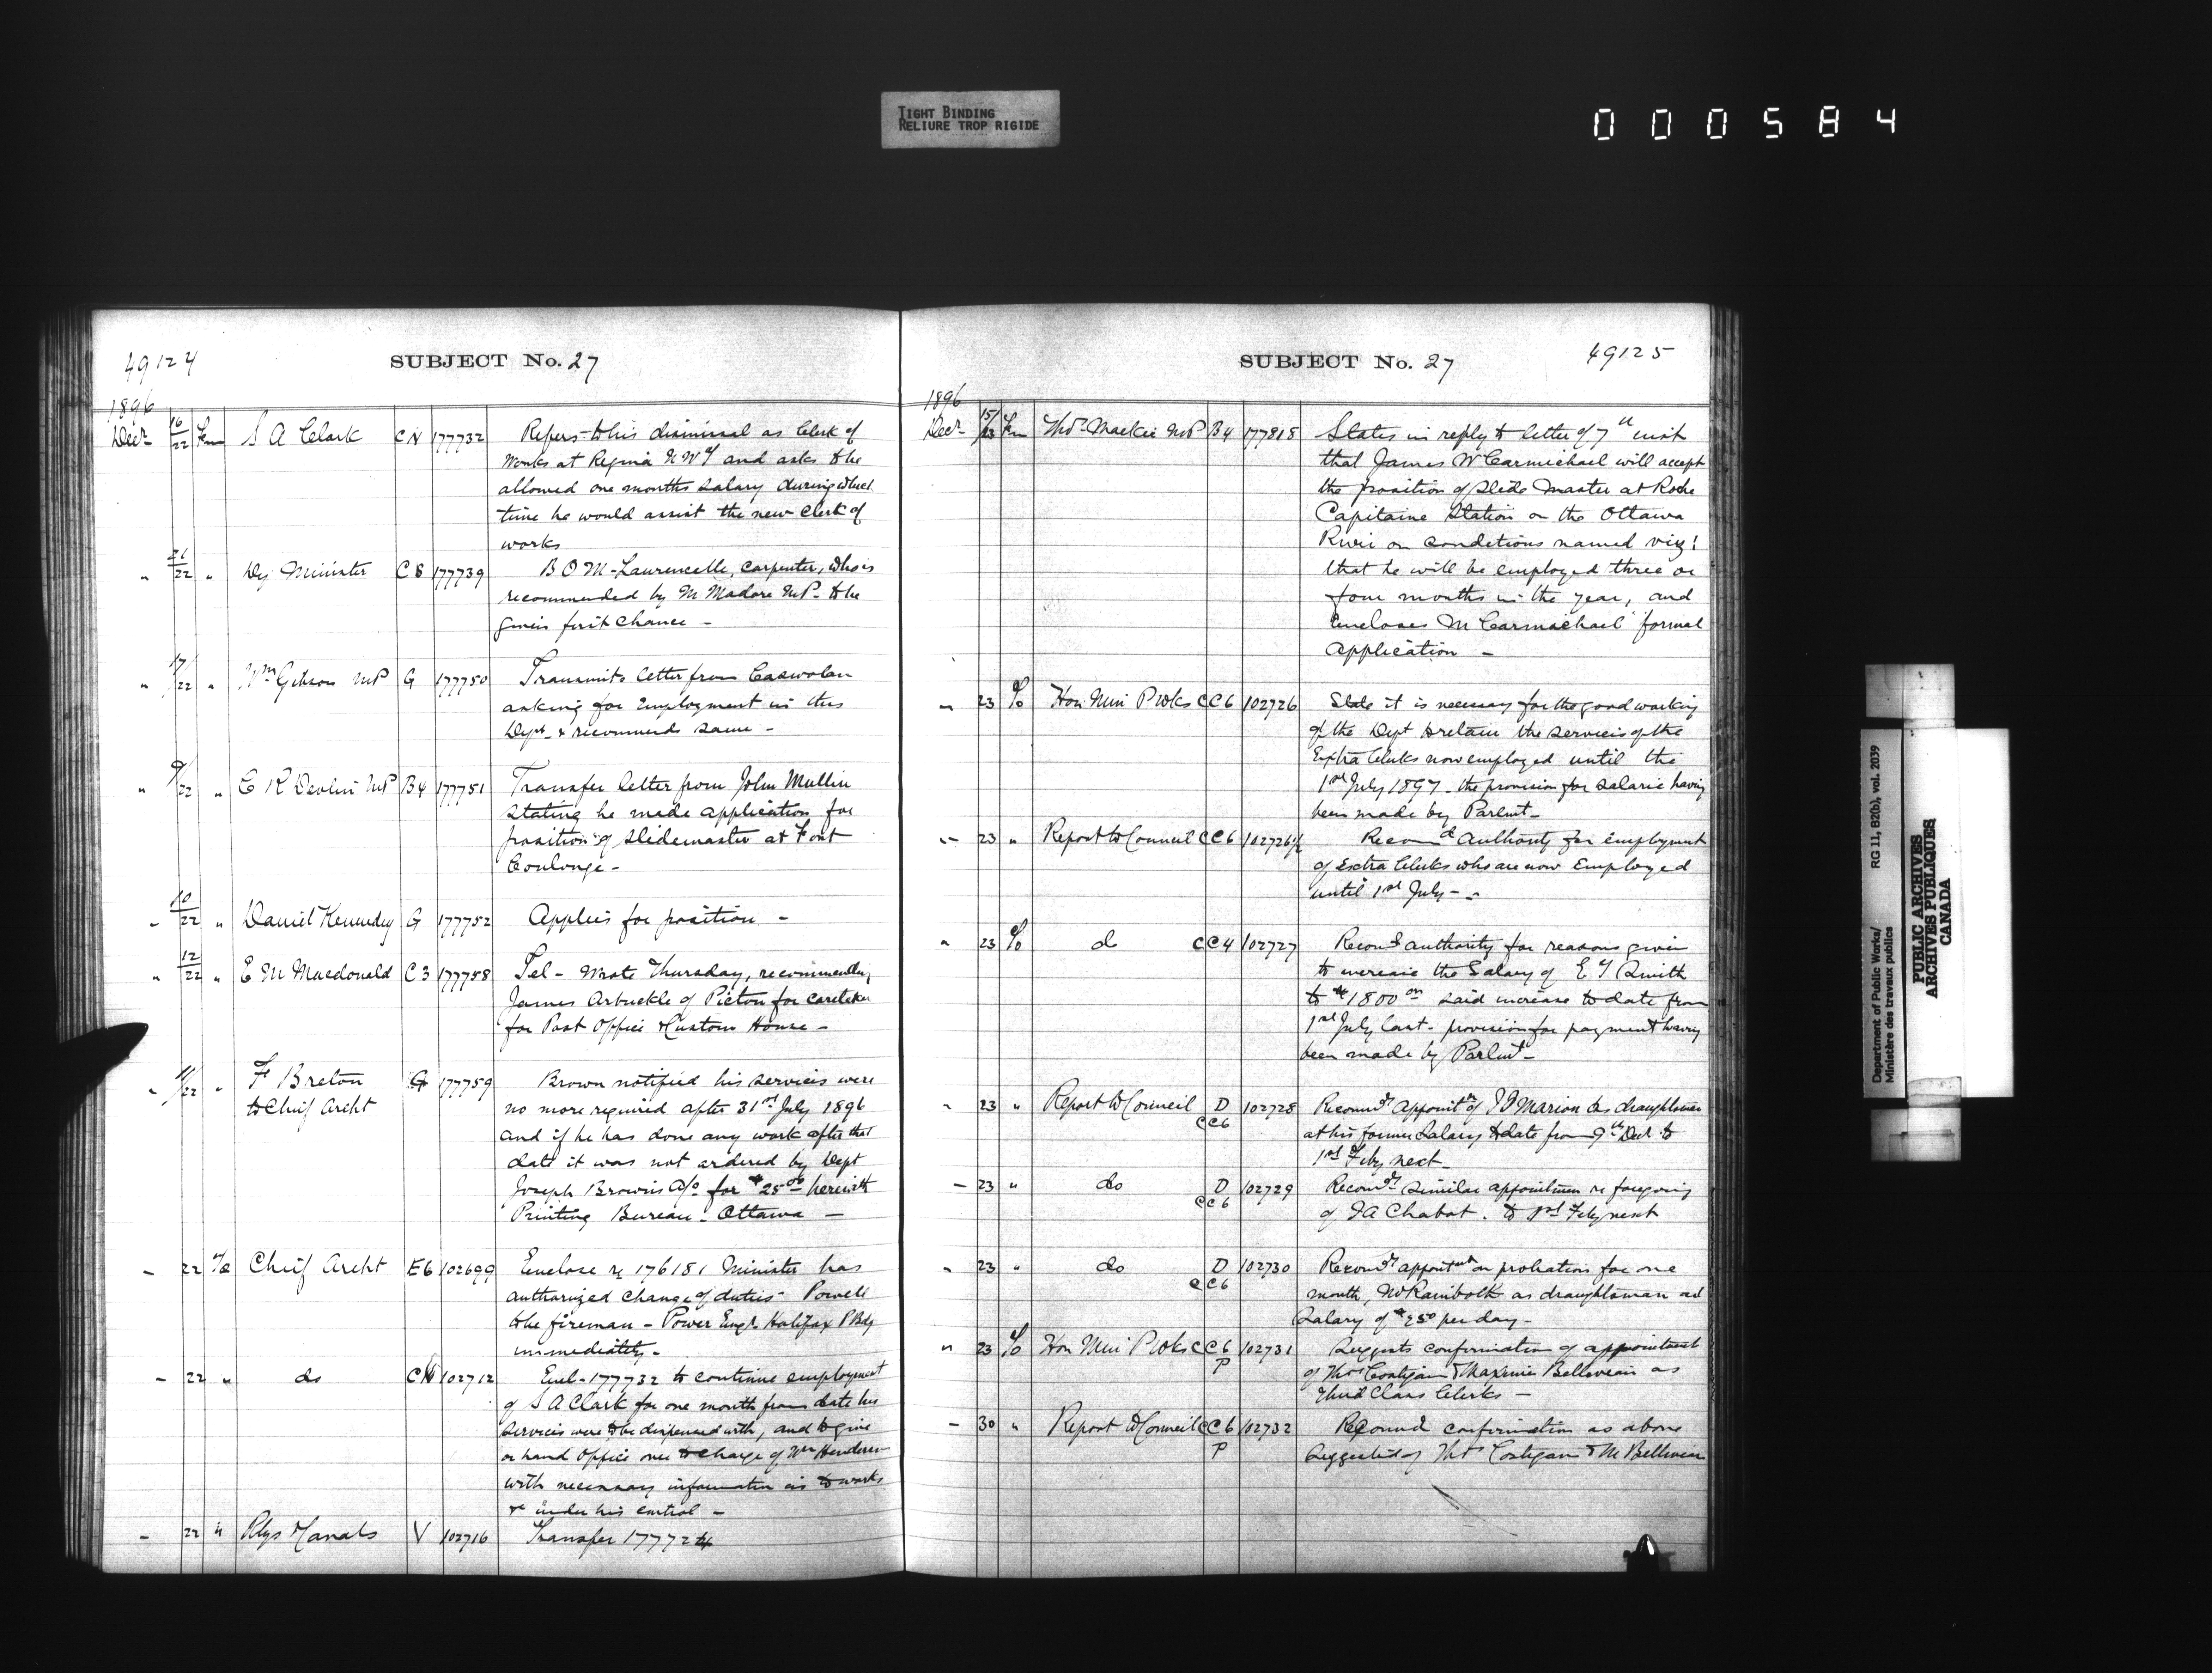 TIGHT BINDING
RELIURE TROP RIGIDE
000584
49124
SUBJECT No. 27
1896
Decr 16/22 Fm S A Clark CN 177732 Refers to his dismissal as Clerk of
Works at Regina NWT and asks to be
allowed one months salary during which
time he would assist the new Clerk of
works
" 21/22 " Dy Minister C8 177739 B O M-Laurencelle, carpenter, who is
recommended by Mr Madore MP to be
given first chance -
" 17/22 " Wm Gibson MP G 177750 Transmits letter from
asking for Employment in this
Dept & recommends same -
" 9/22 " C R Devlin MP B4 177751 Transfer letter from John Mullin
stating he made application for
position of slidemaster at Fort
Coulonge -
" 10/22 " Daniel Kennedy G 177752 Applies for position -
" 12/22 " E M Macdonald C3 177758 Tel - Wrote Thursday, recommending
James Arbuckle of Pictou for caretaker
for Post Office & Custom House -
" 11/22 " F Breton G 177759 Brown notified his services were
to Chief Archt no more required after 31st July 1896
and if he has done any work after that
date it was not ordered by Dept
Joseph Browns a/c for $25.00 herewith
Printing Bureau - Ottawa -
- 22 To Chief Archt E6 102699 Enclose re 176181 Minister has
authorized change of duties - Powell
to be fireman - Power Engr Halifax P Bdg
immediately -
- 22 " do CN 102712 Encl - 177732 to continue employment
of S A Clark for one month from date his
services were to be dispensed with, and to give
or hand Office over to charge of Wm Henderson
with necessary information as to works
&c under his control -
- 22 " Rlys & Canals V 102716 Transfer 177724
SUBJECT No. 27
49125
1896
Decr 15/23 Fm Thos Mackie MP B4 177818 States in reply to letter of 7th inst
that James W Carmichael will accept
the position of Slide Master at Roche
Capitaine Station on the Ottawa
River on conditions named viz:
that he will be employed three or
four months in the year, and
Encloses Mr Carmichael formal
application -
" 23 To Hon Min P Wks CC6 102726 State it is necessary for the good working
of the Dept to retain the services of the
Extra Clerks now employed until the
1st July 1897 - the provision for salaries having
been made by Parlmt -
" 23 " Report to Council CC6 102726½ Recomd Authority for employment
of Extra Clerks who are now Employed
until 1st July -
" 23 To do CC4 102727 Recomd authority for reasons given
to increase the Salary of E T Smith
to $1800 00 said increase to date from
1st July last - provision for payment having
been made by Parlmt -
" 23 " Report to Council D 102728 Recomds Appointt of Marion as draughtsman
CC6 at his former Salary to date from 9th Decr to
1st Feby next -
- 23 " do D 102729 Recomds similar appointmen re foregoing
CC6 of J A Chabot. to 1st Feby next
" 23 " do D 102730 Recomds appointmt on probation for one
CC6 month, as draughtsman at
Salary of $2.50 per day -
" 23 To Hon Min P Wks CC6 102731 Suggests confirmation of appointment
P of Thos Costigan & Maxime Belliveau as
Third Class Clerks -
- 30 " Report to Council CC6 102732 Recomd confirmation as above
P suggested of Thos Costigan & M Belliveau
Department of Public Works/ RG 11, B2(b), vol. 2039
Ministère des travaux publics
PUBLIC ARCHIVES
ARCHIVES PUBLIQUES
CANADA